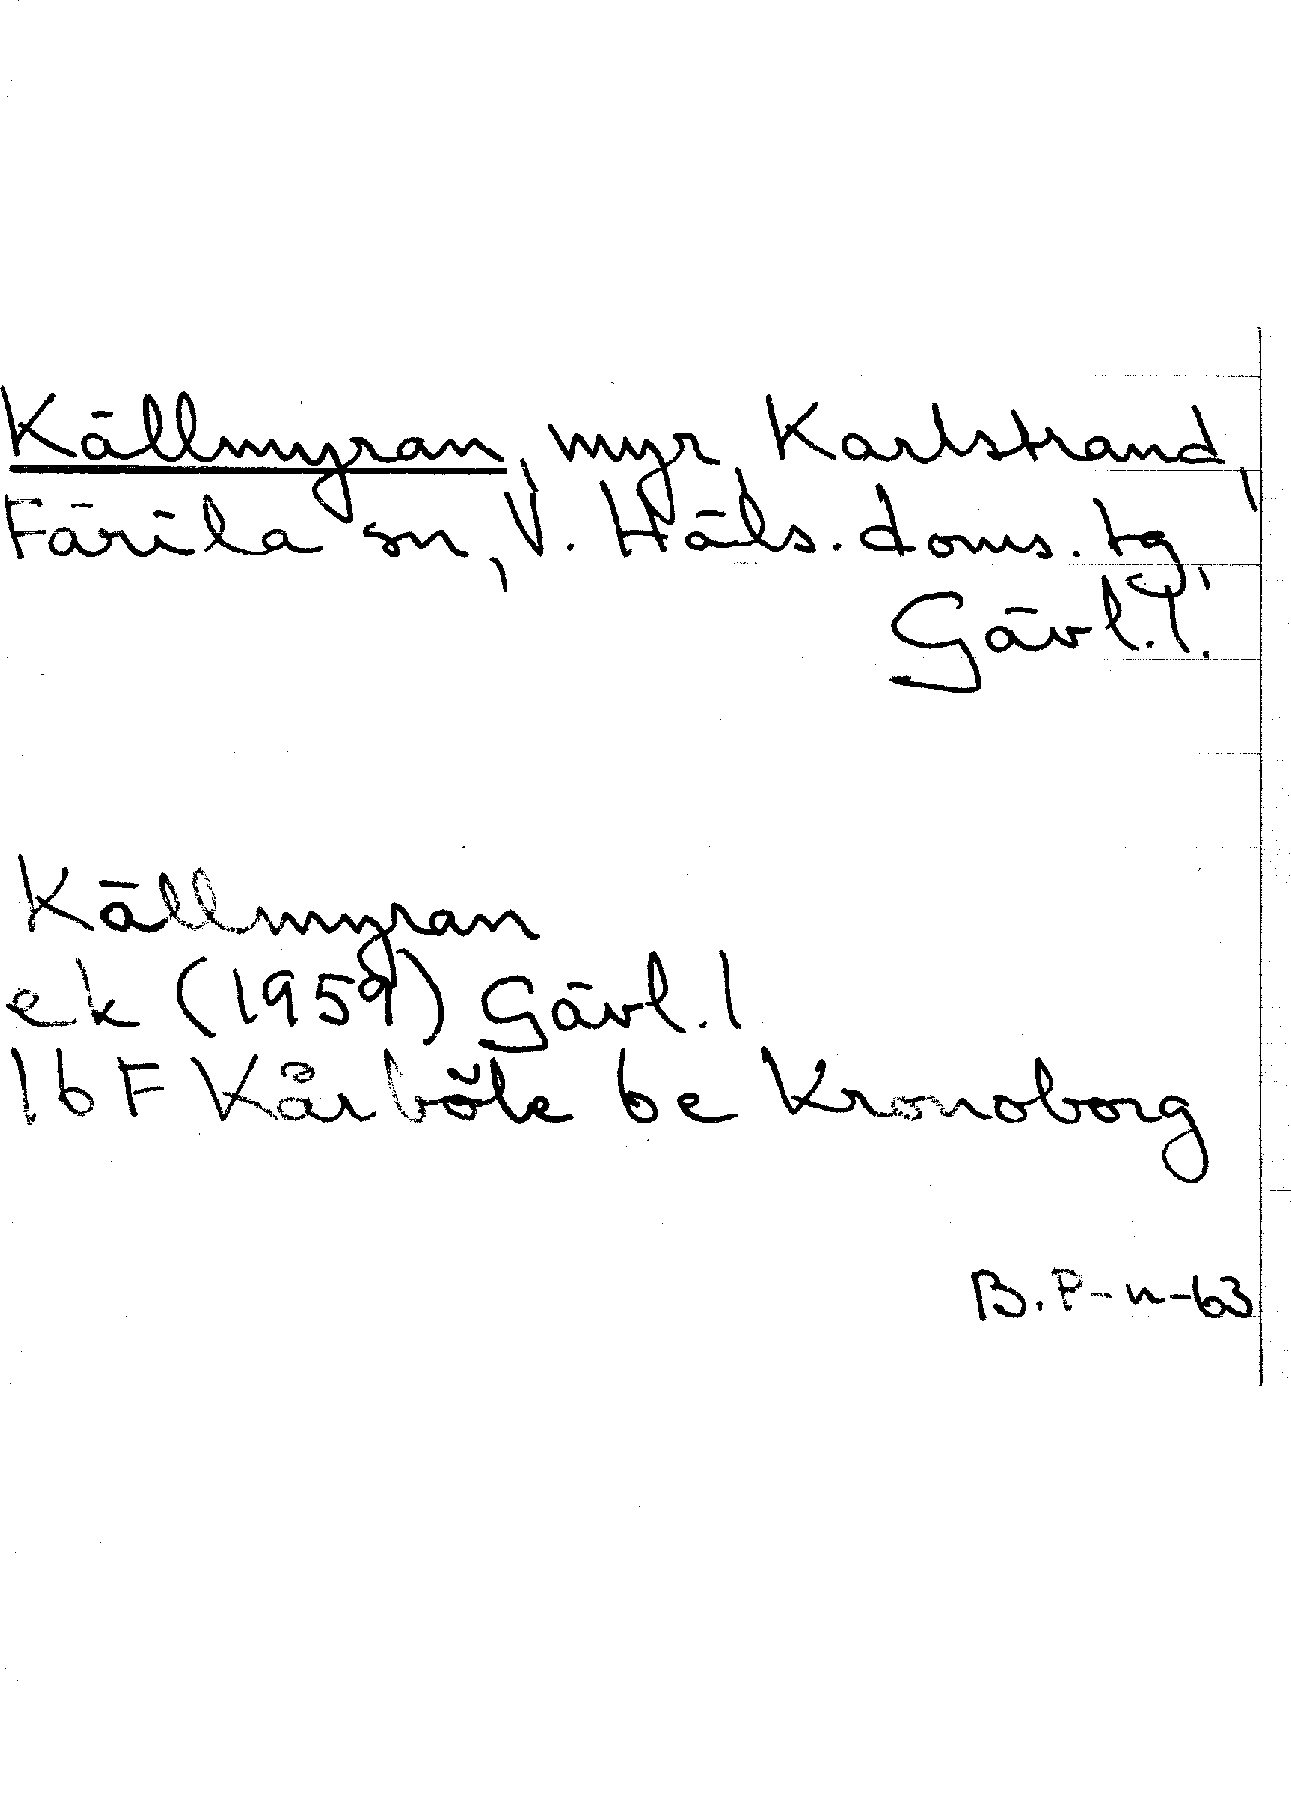 Källmyran, myr, Karlstrand,
Färila sn, V. Häls. doms. tg,
Gävl. l.
Källmyran
ek (1959) Gävl. l
16 F Kårböle be Kronoborg
B. P-n-63